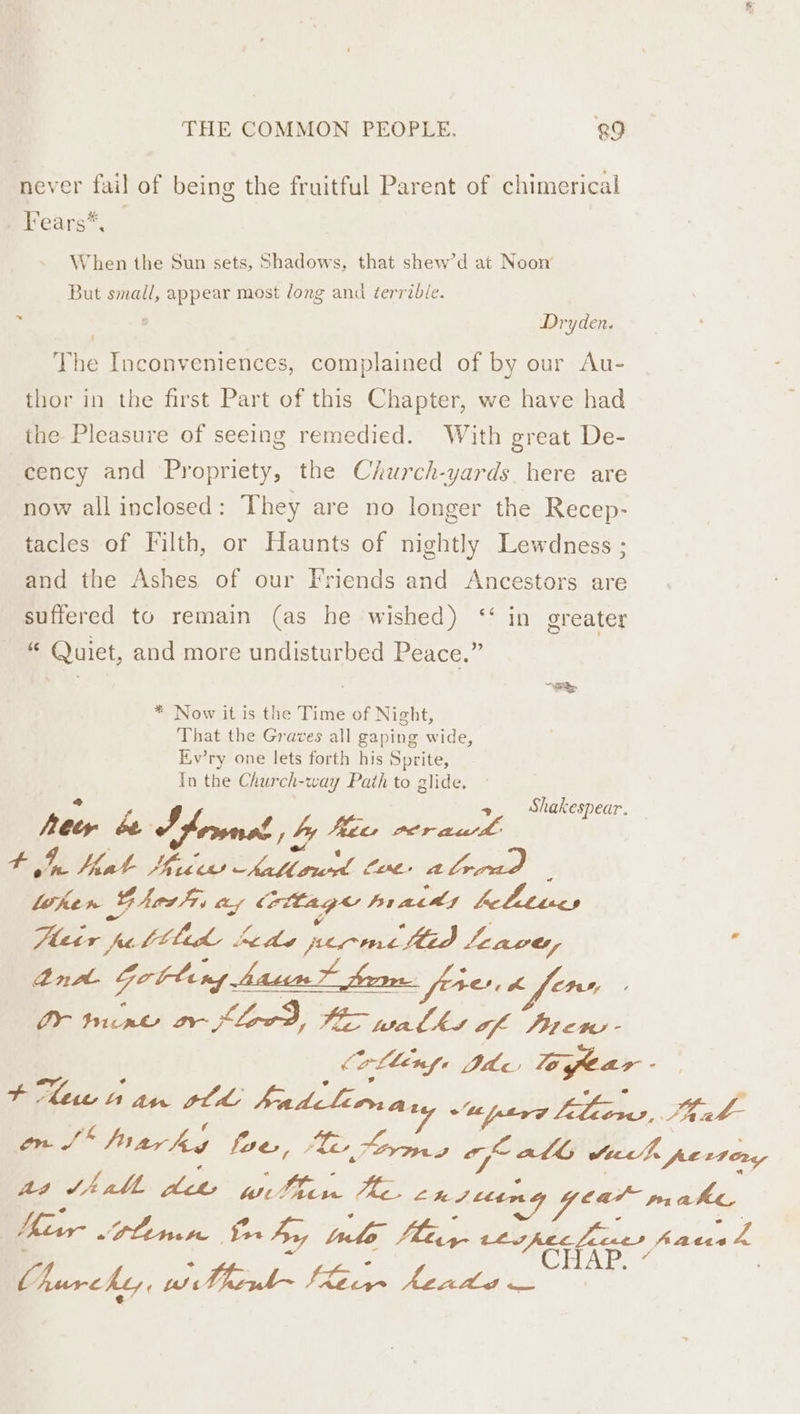 THE COMMON PEOPLE. 89
never fail of being the fruitful Parent of chimerical
Fears*,
When the Sun sets, Shadows, that shew’d at Noon
But small, appear most long and terrible.
Dryden.
The Inconveniences, complained of by our Au-
thor in the first Part of this Chapter, we have had
the Pleasure of seeing remedied. With great De-
cency and Propriety, the Church-yards here are
now all inclosed: They are no longer the Recep-
tacles of Filth, or Haunts of nightly Lewdness;
and the Ashes of our Friends and Ancestors are
suffered to remain (as he wished) “ in greater
“ Quiet, and more undisturbed Peace.”
* Now it is the Time of Night,
That the Graves all gaping wide,
Ev’ry one lets forth his Sprite,
In the Church-way Path to glide.
Shakespear.
be , by
+ In that hallowd Eve abroad
When Ghosts, as Cottage maids believe
Their pebbled beds permitted leave,
And Gobling haunt from fires, & fens,
Or mines or flood, the walks of Men -
Collins's Ode to Fear -
+ There is an old traditionary superstition, that
on St Marks Eve, the forms of all such persons
as shall die within the ensuing year make
their solemn Entry into their respective parish
Churches, without their heads —
CHAP.